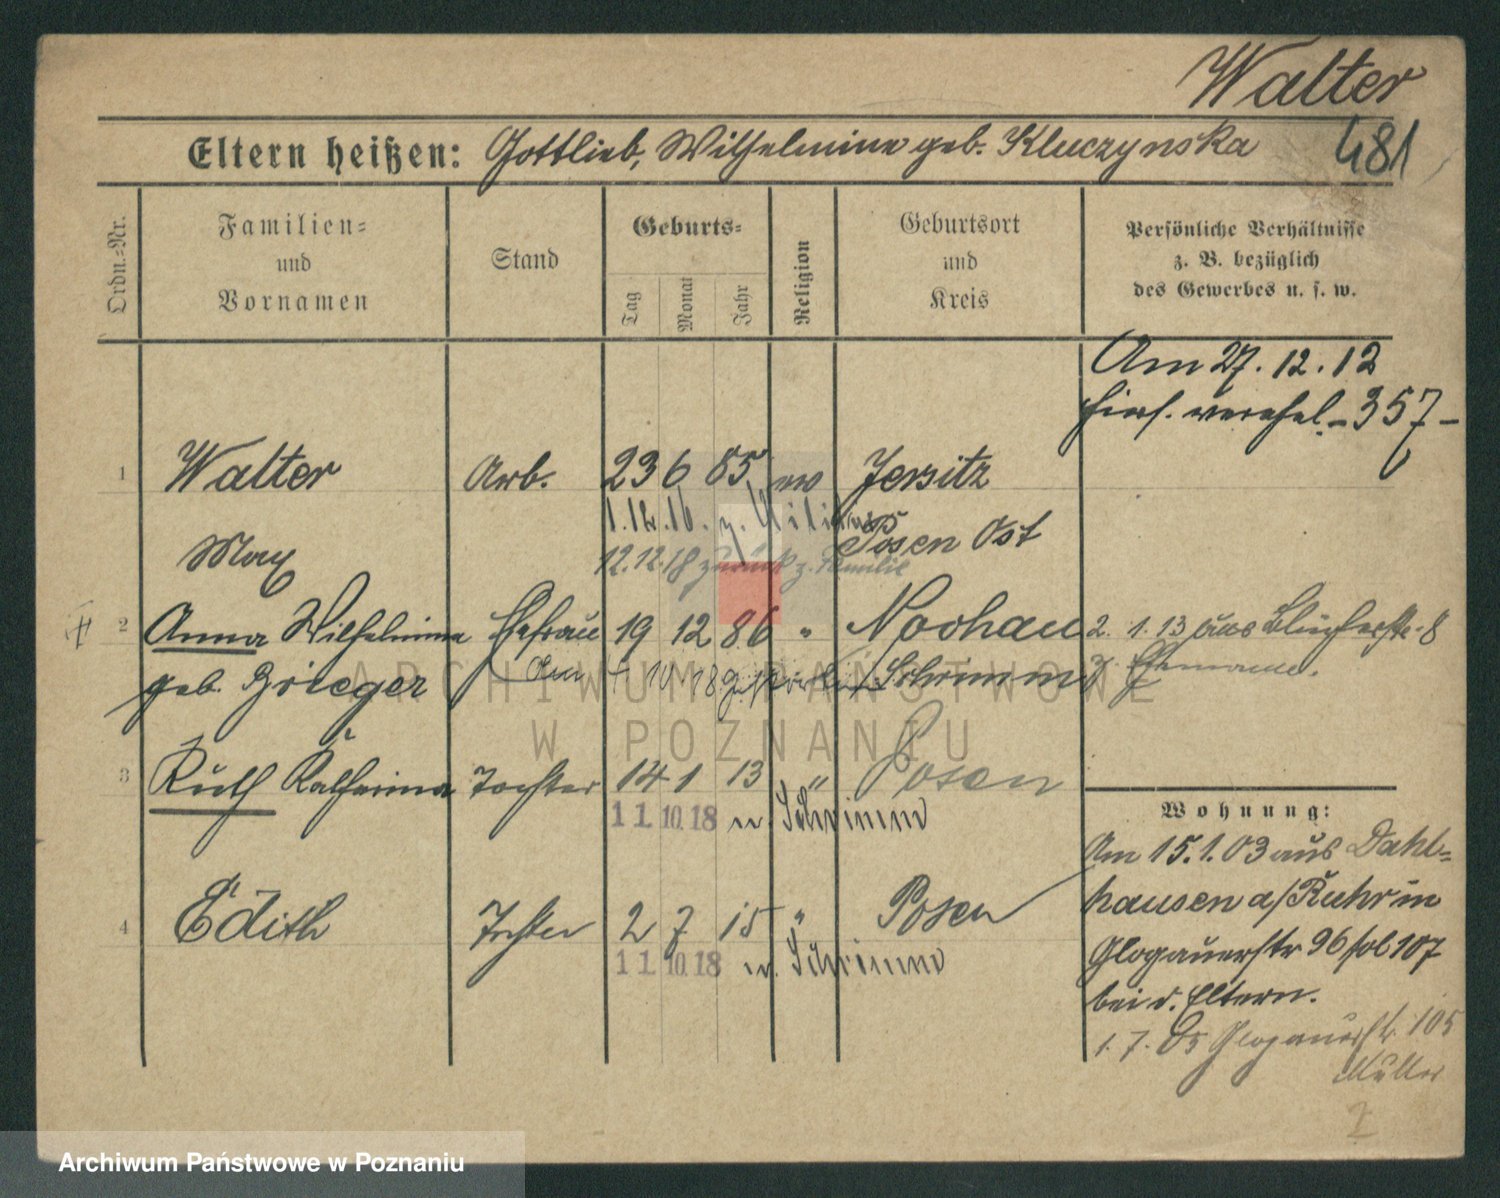 Walter
481
Eltern heißen: Gottlieb, Wilhelmine geb. Kluczynska
Ordn.-Nr.
Familien- und Vornamen
Stand
Geburts-
Tag
Monat
Jahr
Religion
Geburtsort und Kreis
Persönliche Verhältnisse z. B. bezüglich des Gewerbes u. s. w.
Am 27. 12. 12
hiers. verehel. - 357 -
1 Walter Arb. 23 6 85 ev Jersitz
1. 12. 16. z. Militär
Posen Ost
Max
12.12.18 zurück z. Familie
2 Anna Wilhelmine Ehefrau 19 12 86 " Nochau
2. 1. 13 aus Blücherstr. 8
geb. Brieger
Am 10 18 gestorben
Schrimm
z. Ehemann.
3 Ruth Katharina Tochter 14 1 13 " Posen
11. 10. 18 n. Schrimm
4 Edith Tochter 2 7 15 " Posen
11. 10. 18 n. Schrimm
Wohnung:
Am 15.1.03 aus Dahl-
hausen a/Ruhr in
Glogauerstr 96 sol 107
bei d. Eltern.
1. 7. 05 Glogauerstr. 105
Mutter
ARCHIWUM PAŃSTWOWE
W POZNANIU
Archiwum Państwowe w Poznaniu